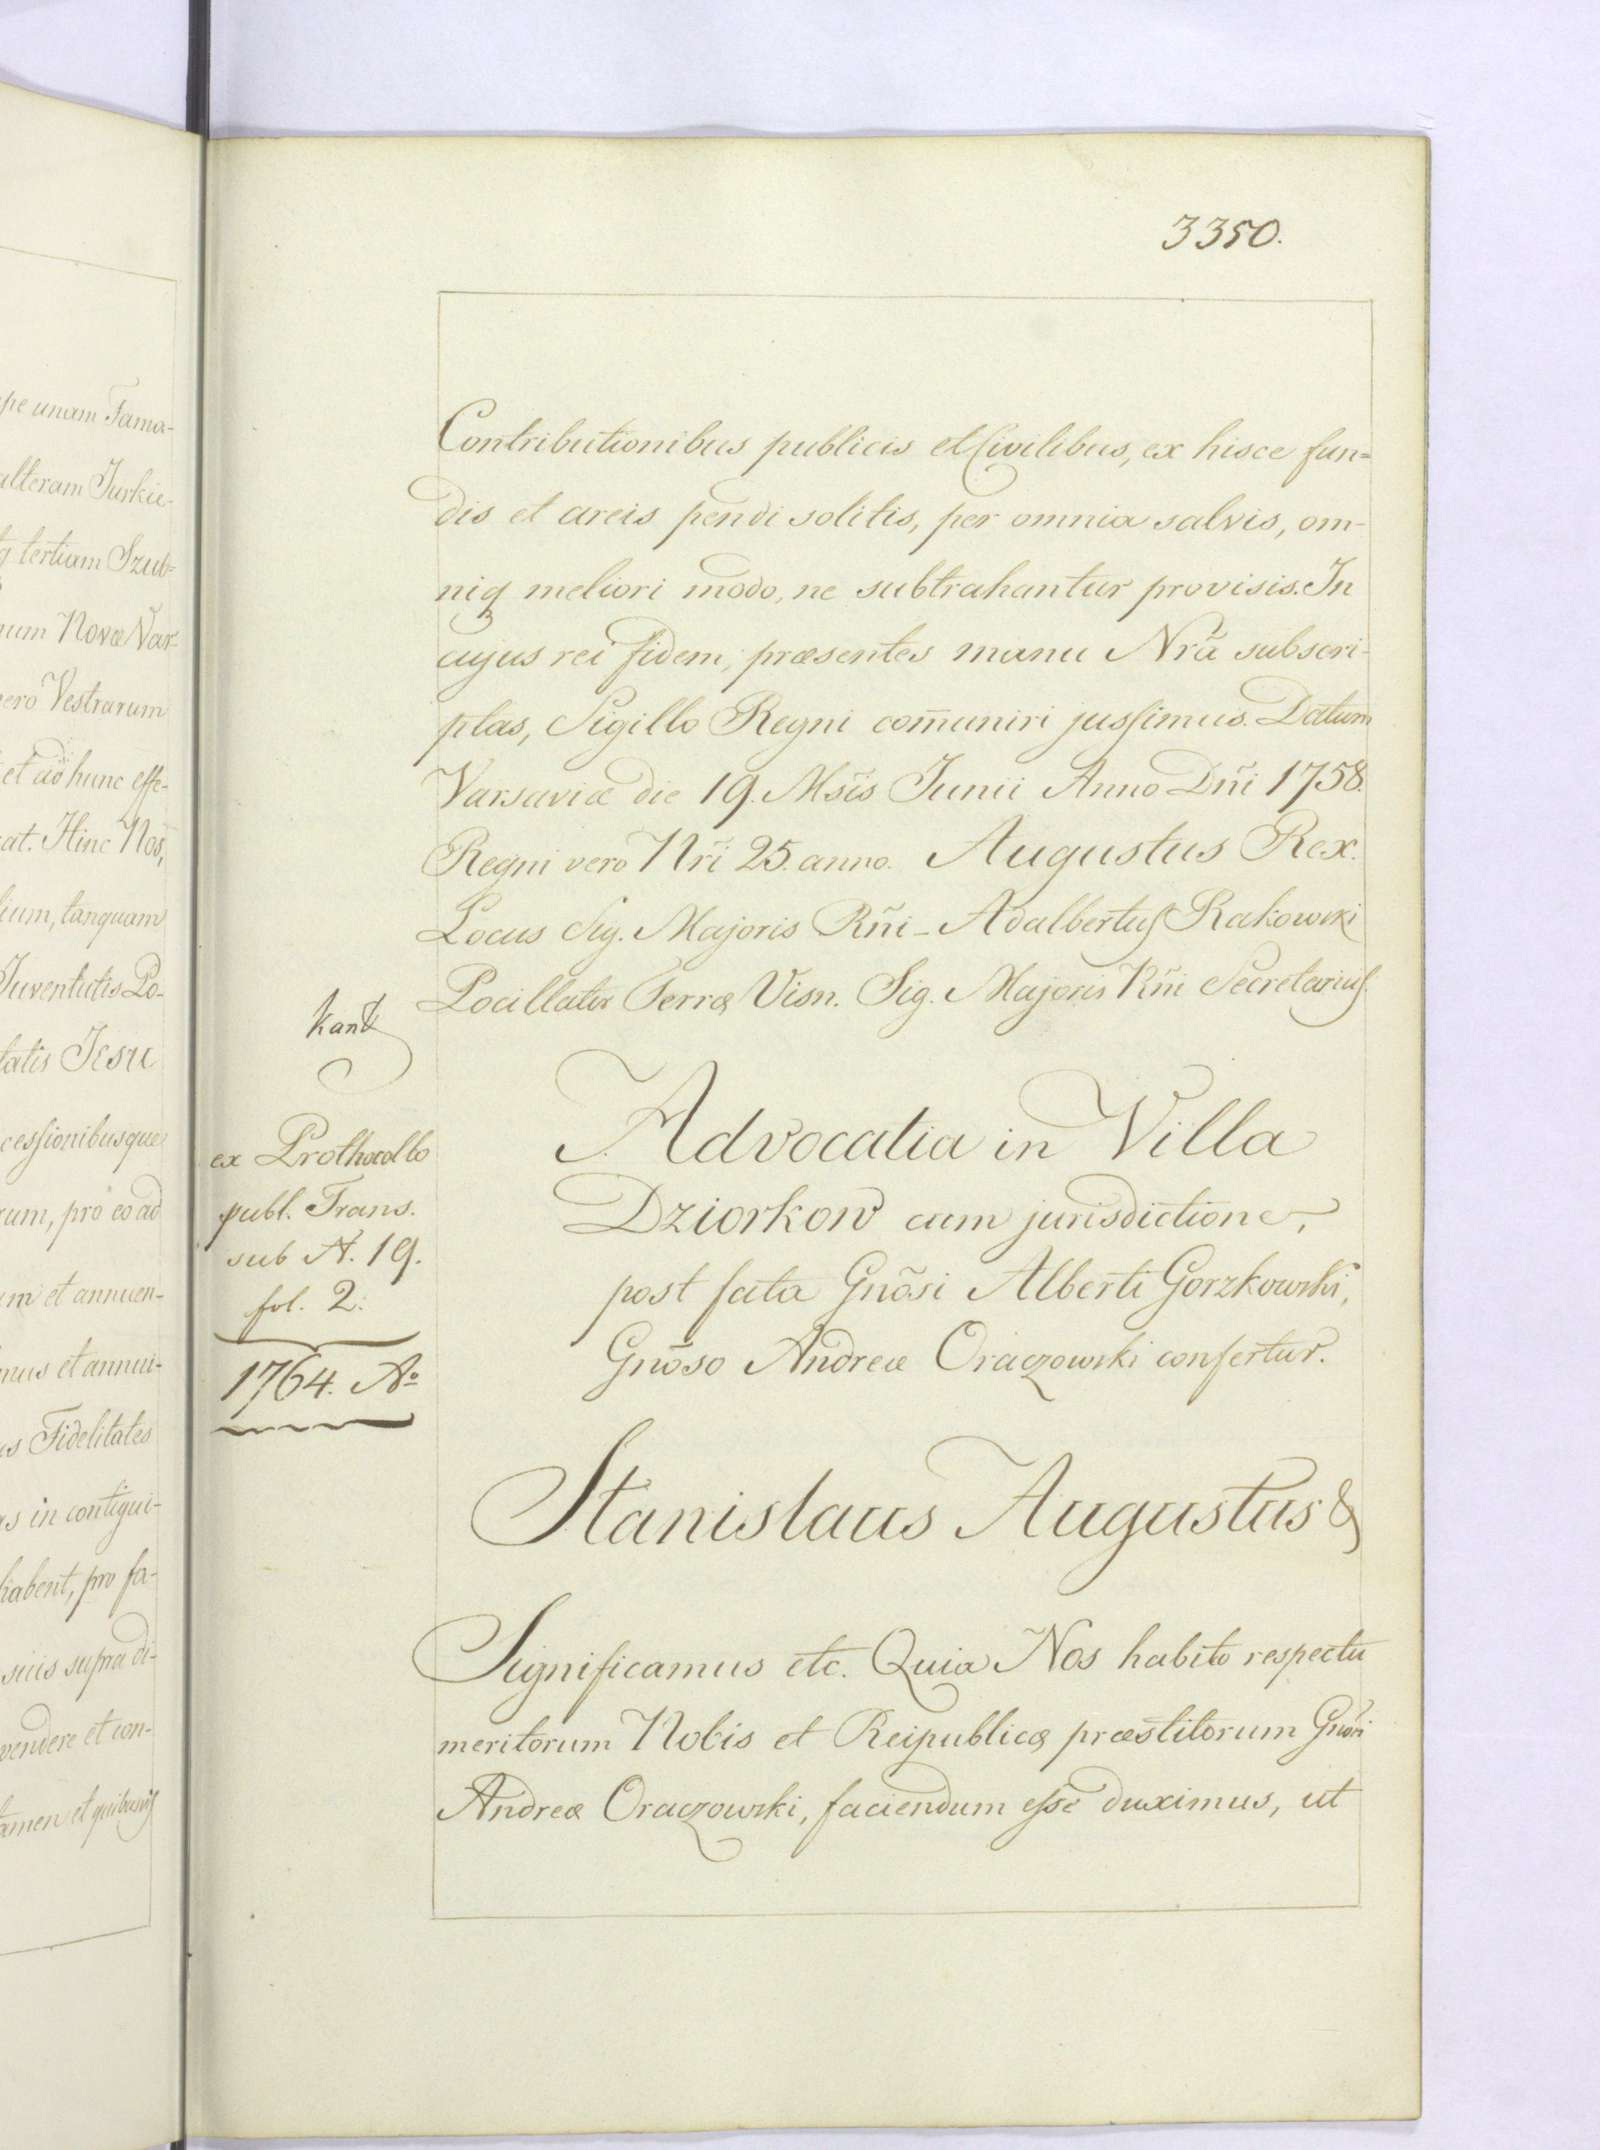 3350.
Contributionibus publicis et Civilibus, ex hisce fun=
dis et areis pendi solitis, per omnia salvis, om-
niq meliori modo, ne subtrahantur provisis. In
cujus rei fidem, præsentes manu Nrã subscri-
ptas, Sigillo Regni com̃uniri jussimus. Datum
Varsaviæ die 19. Msĩs Junii Anno Dñi 1758.
Regni vero Nrĩ 25. anno. Augustus Rex.
Locus Sig. Majoris Rñi - Adalbertus Rakowski
Pocillator Terræ Visn. Sig. Majoris Rñi Secretarius.
ex Prothocollo
publ. Trans.
sub A. 19.
fol. 2.
1764. Aº
Advocatia in Villa
Dziorkow cum jurisdictione,
post fata Gnõsi Alberti Gorzkowski,
Gnõso Andreæ Oraczowski confertur.
Stanislaus Augustus &
Significamus etc. Quia Nos habito respectu
meritorum Nobis et Reipublicæ præstitorum Gnõsi
Andreæ Oraczowski, faciendum esse duximus, ut
pe unam Fama-
alteram Jurkie-
q tertiam Szub=
num Novæ Var-
vero Vestrarum
et ad hunc effe-
cat. Hinc Nos,
lium, tanquam
Juventutis Po-
tatis Jesu
cessionibusque
rum, pro eo ad
um et annuen-
mus et annui-
es Fidelitates
as in contigui-
habent, pro fa-
suis supra di-
vendere et con-
tamen et quibusvis